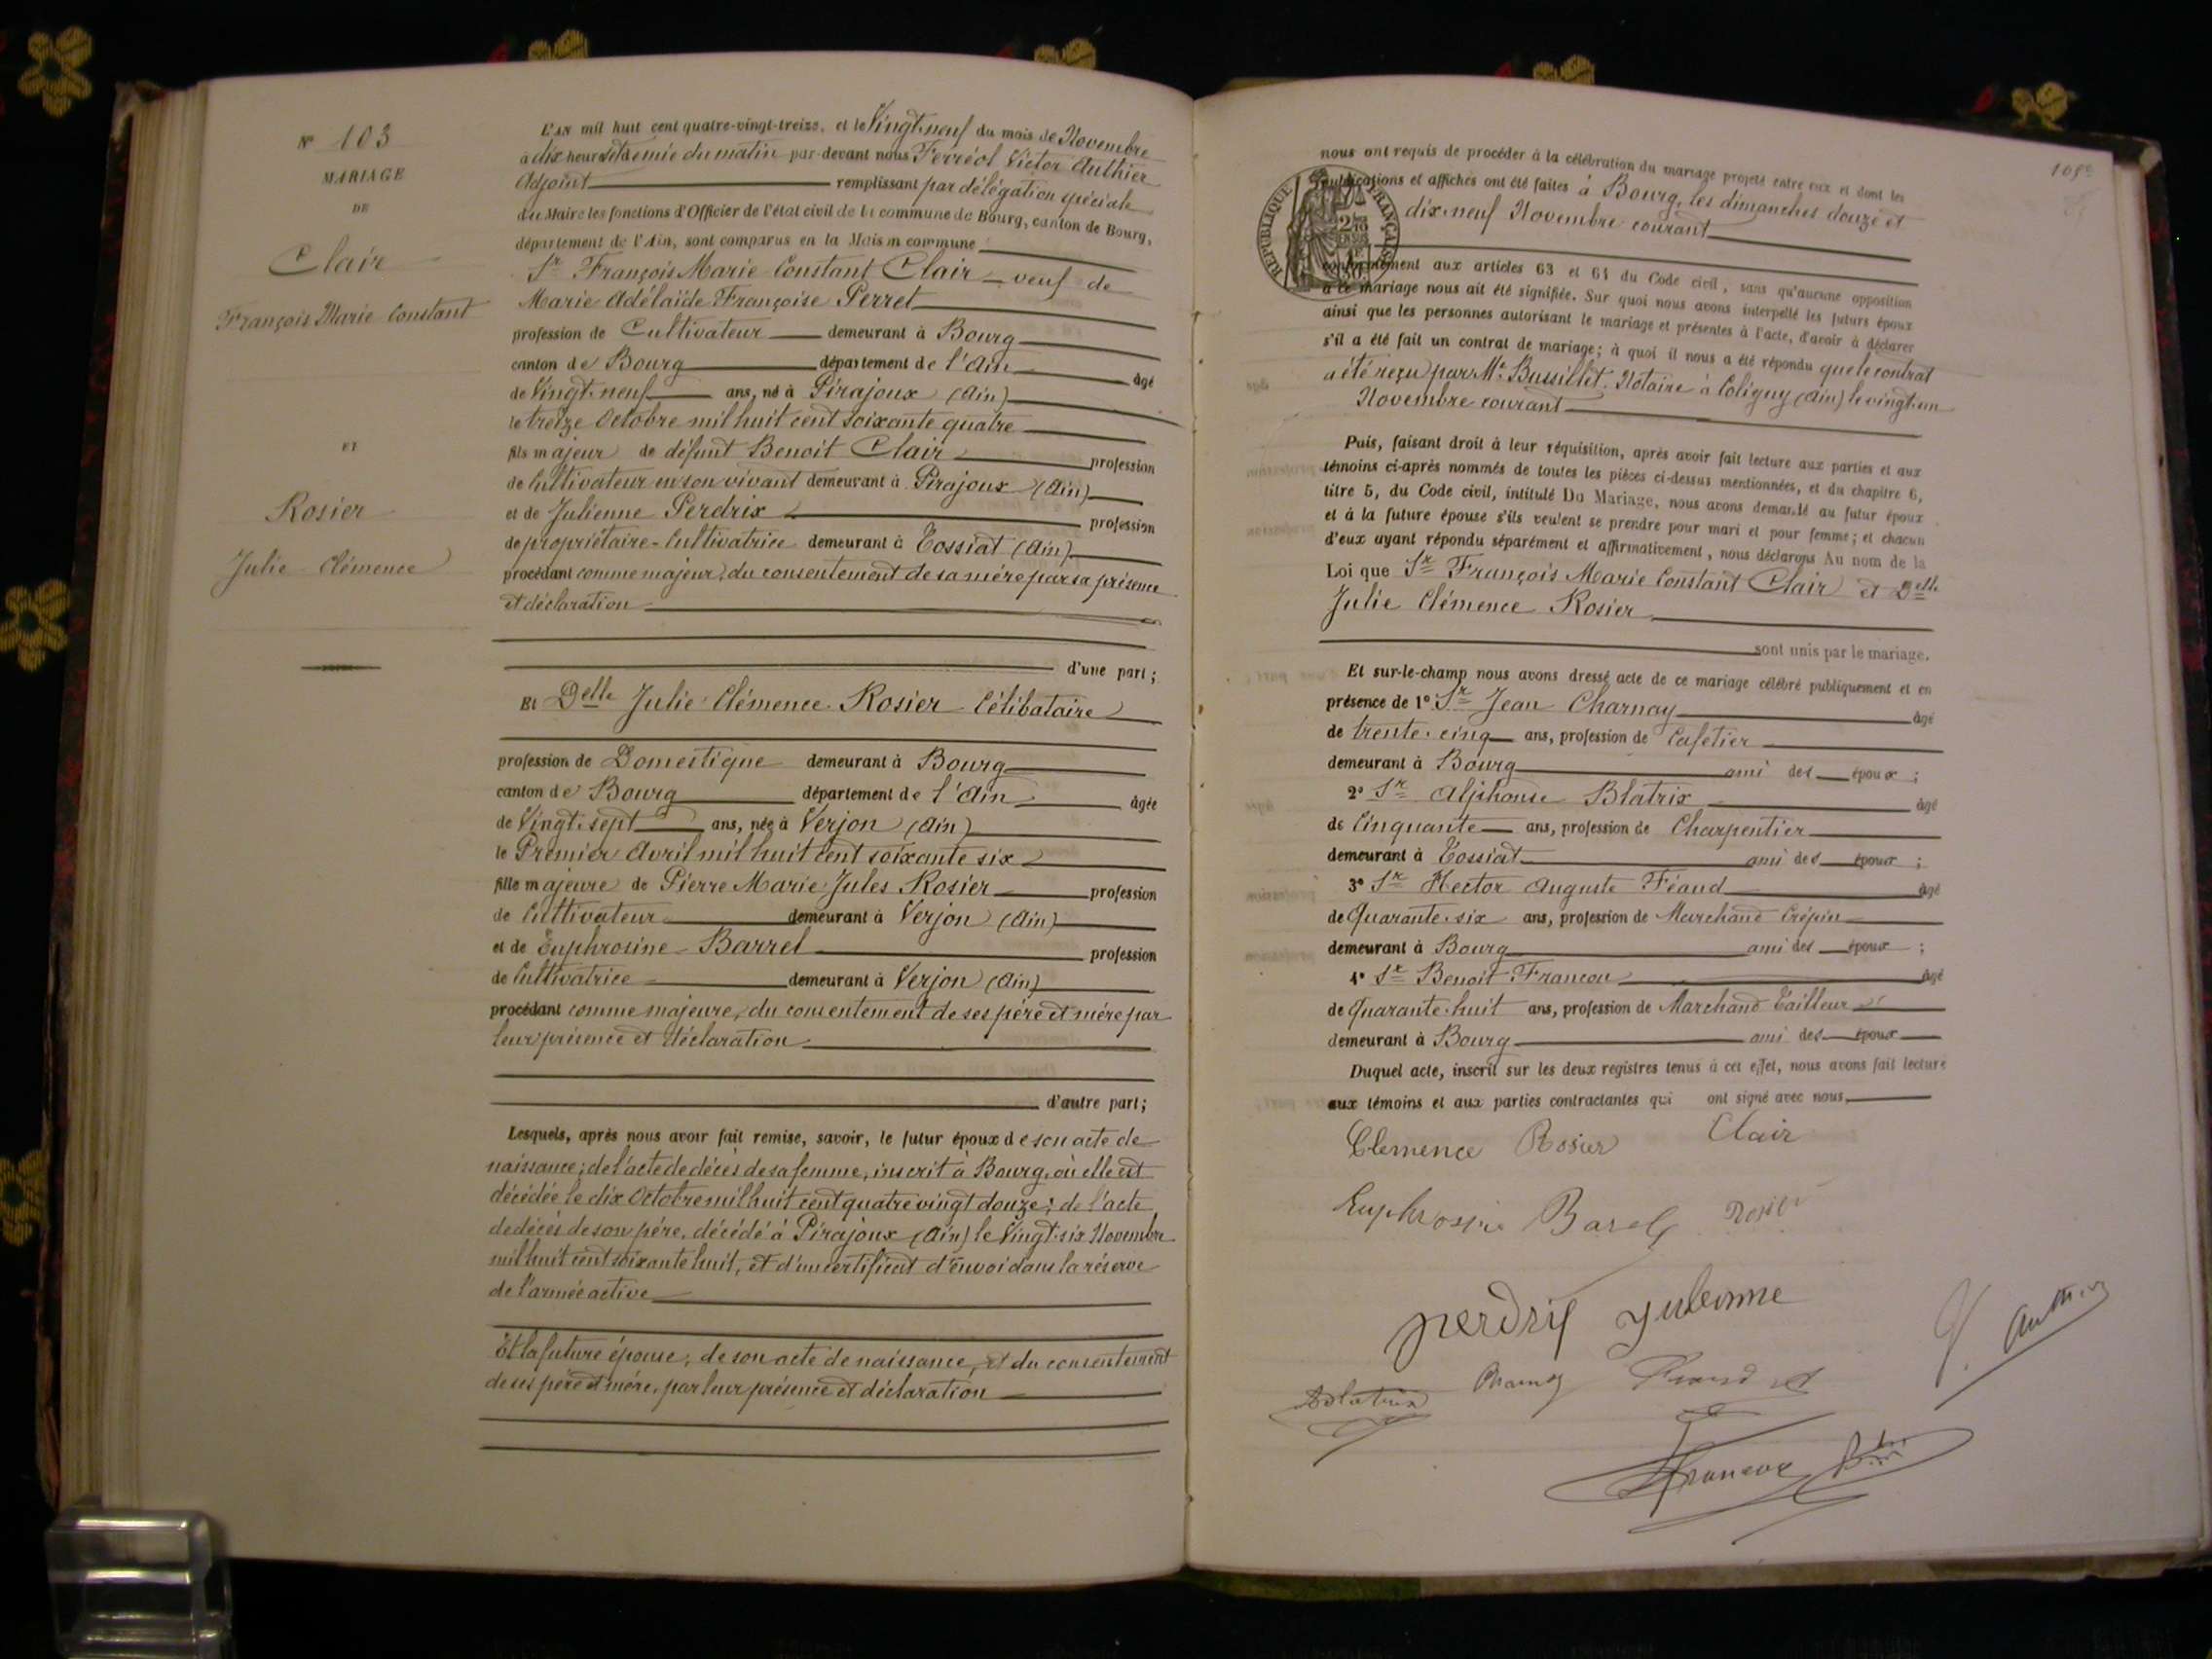 N° 103
MARIAGE
DE
Clair
François Marie Constant
ET
Rosier
Julie Clémence
L'AN mil huit cent quatre-vingt-treize, et le Vingt-neuf du mois de Novembre
à dix heures et demie du matin par-devant nous Ferréol Victor Authier
Adjoint remplissant par délégation spéciale
du Maire les fonctions d'Officier de l'état civil de la commune de Bourg, canton de Bourg,
département de l'Ain, sont comparus en la Maison commune
Sr François Marie Constant Clair veuf de
Marie Adélaïde Françoise Perret
profession de Cultivateur demeurant à Bourg
canton de Bourg département de l'Ain âgé
de Vingt-neuf ans, né à Pirajoux (Ain)
le treize Octobre mil huit cent soixante quatre
fils majeur de défunt Benoit Clair profession
de Cultivateur en son vivant demeurant à Pirajoux (Ain)
et de Julienne Perdrix profession
de propriétaire-Cultivatrice demeurant à Tossiat (Ain)
procédant comme majeur, du consentement de sa mère par sa présence
et déclaration
d'une part;
Et Delle Julie Clémence Rosier Célibataire
profession de Domestique demeurant à Bourg
canton de Bourg département de l'Ain âgée
de Vingt-sept ans, née à Verjon (Ain)
le Premier Avril mil huit cent soixante six
fille majeure de Pierre Marie Jules Rosier profession
de Cultivateur demeurant à Verjon (Ain)
et de Euphrosine Barrel profession
de Cultivatrice demeurant à Verjon (Ain)
procédant comme majeure, du consentement de ses père et mère par
leur présence et déclaration
d'autre part;
Lesquels, après nous avoir fait remise, savoir, le futur époux de son acte de
naissance; de l'acte de décès de sa femme, inscrit à Bourg, où elle est
décédée le dix Octobre mil huit cent quatre vingt douze; de l'acte
de décès de son père, décédé à Pirajoux (Ain) le Vingt-six Novembre
mil huit cent soixante huit, et d'un certificat d'envoi dans la réserve
de l'armée active
Et la future épouse, de son acte de naissance, et du consentement
de ses père et mère, par leur présence et déclaration
nous ont requis de procéder à la célébration du mariage projeté entre eux et dont les
publications et affiches ont été faites à Bourg, les dimanches douze et
dix-neuf Novembre courant
RÉPUBLIQUE FRANÇAISE
conformément aux articles 63 et 64 du Code civil, sans qu'aucune opposition
à ce mariage nous ait été signifiée. Sur quoi nous avons interpellé les futurs époux
ainsi que les personnes autorisant le mariage et présentes à l'acte, d'avoir à déclarer
s'il a été fait un contrat de mariage; à quoi il nous a été répondu que le contrat
a été reçu par Me Bussillet, Notaire à Coligny (Ain) le vingt-un
Novembre courant
Puis, faisant droit à leur réquisition, après avoir fait lecture aux parties et aux
témoins ci-après nommés de toutes les pièces ci-dessus mentionnées, et du chapitre 6,
titre 5, du Code civil, intitulé Du Mariage, nous avons demandé au futur époux
et à la future épouse s'ils veulent se prendre pour mari et pour femme; et chacun
d'eux ayant répondu séparément et affirmativement, nous déclarons Au nom de la
Loi que Sr François Marie Constant Clair et Delle
Julie Clémence Rosier
sont unis par le mariage.
Et sur-le-champ nous avons dressé acte de ce mariage célébré publiquement et en
présence de 1° Sr Jean Charnay âgé
de trente-cinq ans, profession de Cafetier
demeurant à Bourg ami des époux ;
2° Sr Alphonse Blatrix âgé
de Cinquante ans, profession de Charpentier
demeurant à Tossiat ami des époux ;
3° Sr Hector Auguste Féaud âgé
de Quarante-six ans, profession de Marchand Crépin
demeurant à Bourg ami des époux ;
4° Sr Benoit Francon âgé
de Quarante-huit ans, profession de Marchand Tailleur
demeurant à Bourg ami des époux
Duquel acte, inscrit sur les deux registres tenus à cet effet, nous avons fait lecture
aux témoins et aux parties contractantes qui ont signé avec nous.
Clemence Rosier Clair
Euphrosine Barel Rosier
perdrix Juleinne
V. Authier
Blatrix Charnay Féaud A
Francon Bt